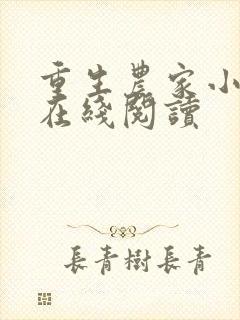 重生農家小
在綫閱讀
長青樹長青